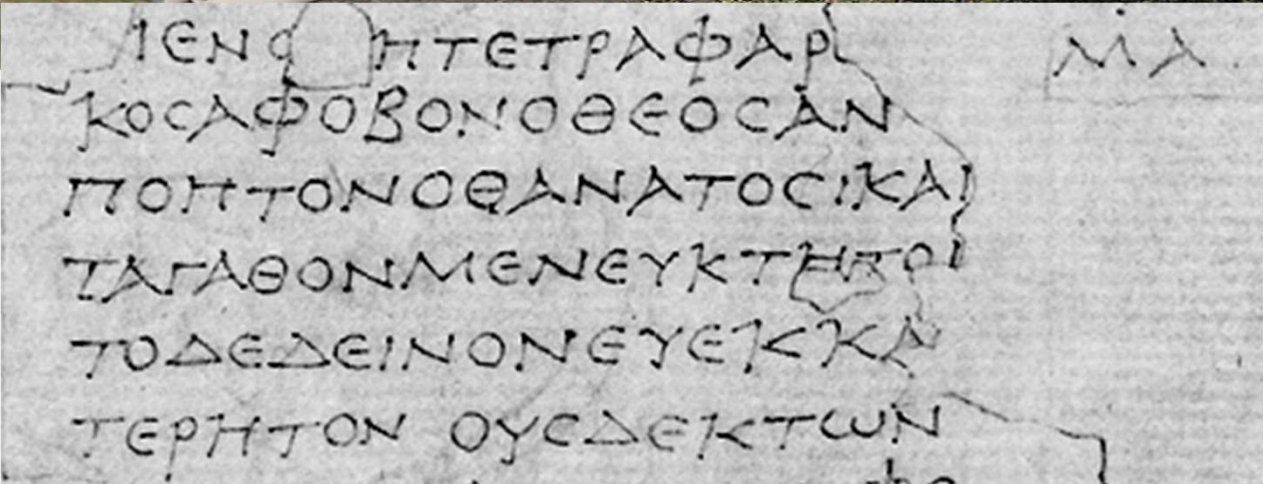 ΙΕΝΟ ΠΤΕΤΡΑΦΑΡ ΜΑ
ΚΟCΑΦΟΒΟΝΟΘΕΟCΑΝ
ΠΟΠΤΟΝΟΘΑΝΑΤΟCΙΚΑΙ
ΤΑΓΑΘΟΝΜΕΝΕΥΚΤΗΤΟΙ
ΤΟΔΕΔΕΙΝΟΝΕΥΕΚΚΑ
ΤΕΡΗΤΟΝ ΟΥCΔΕΚΤωΝ